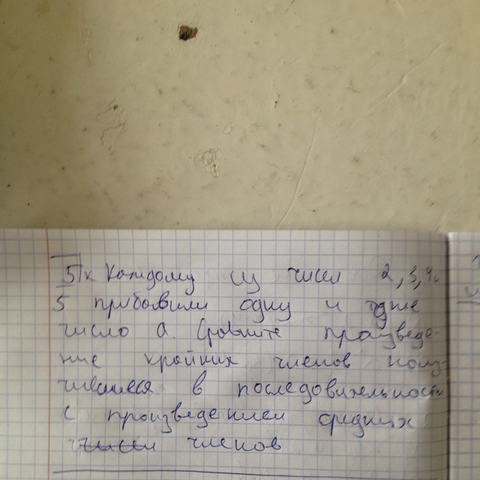 5) К каждому из чисел 2, 3, 4,
5 прибавили одну и тоже
число a. Сравните произведе-
ние крайних членов полу-
чившиеся в последовательность
с произведением средних
членов